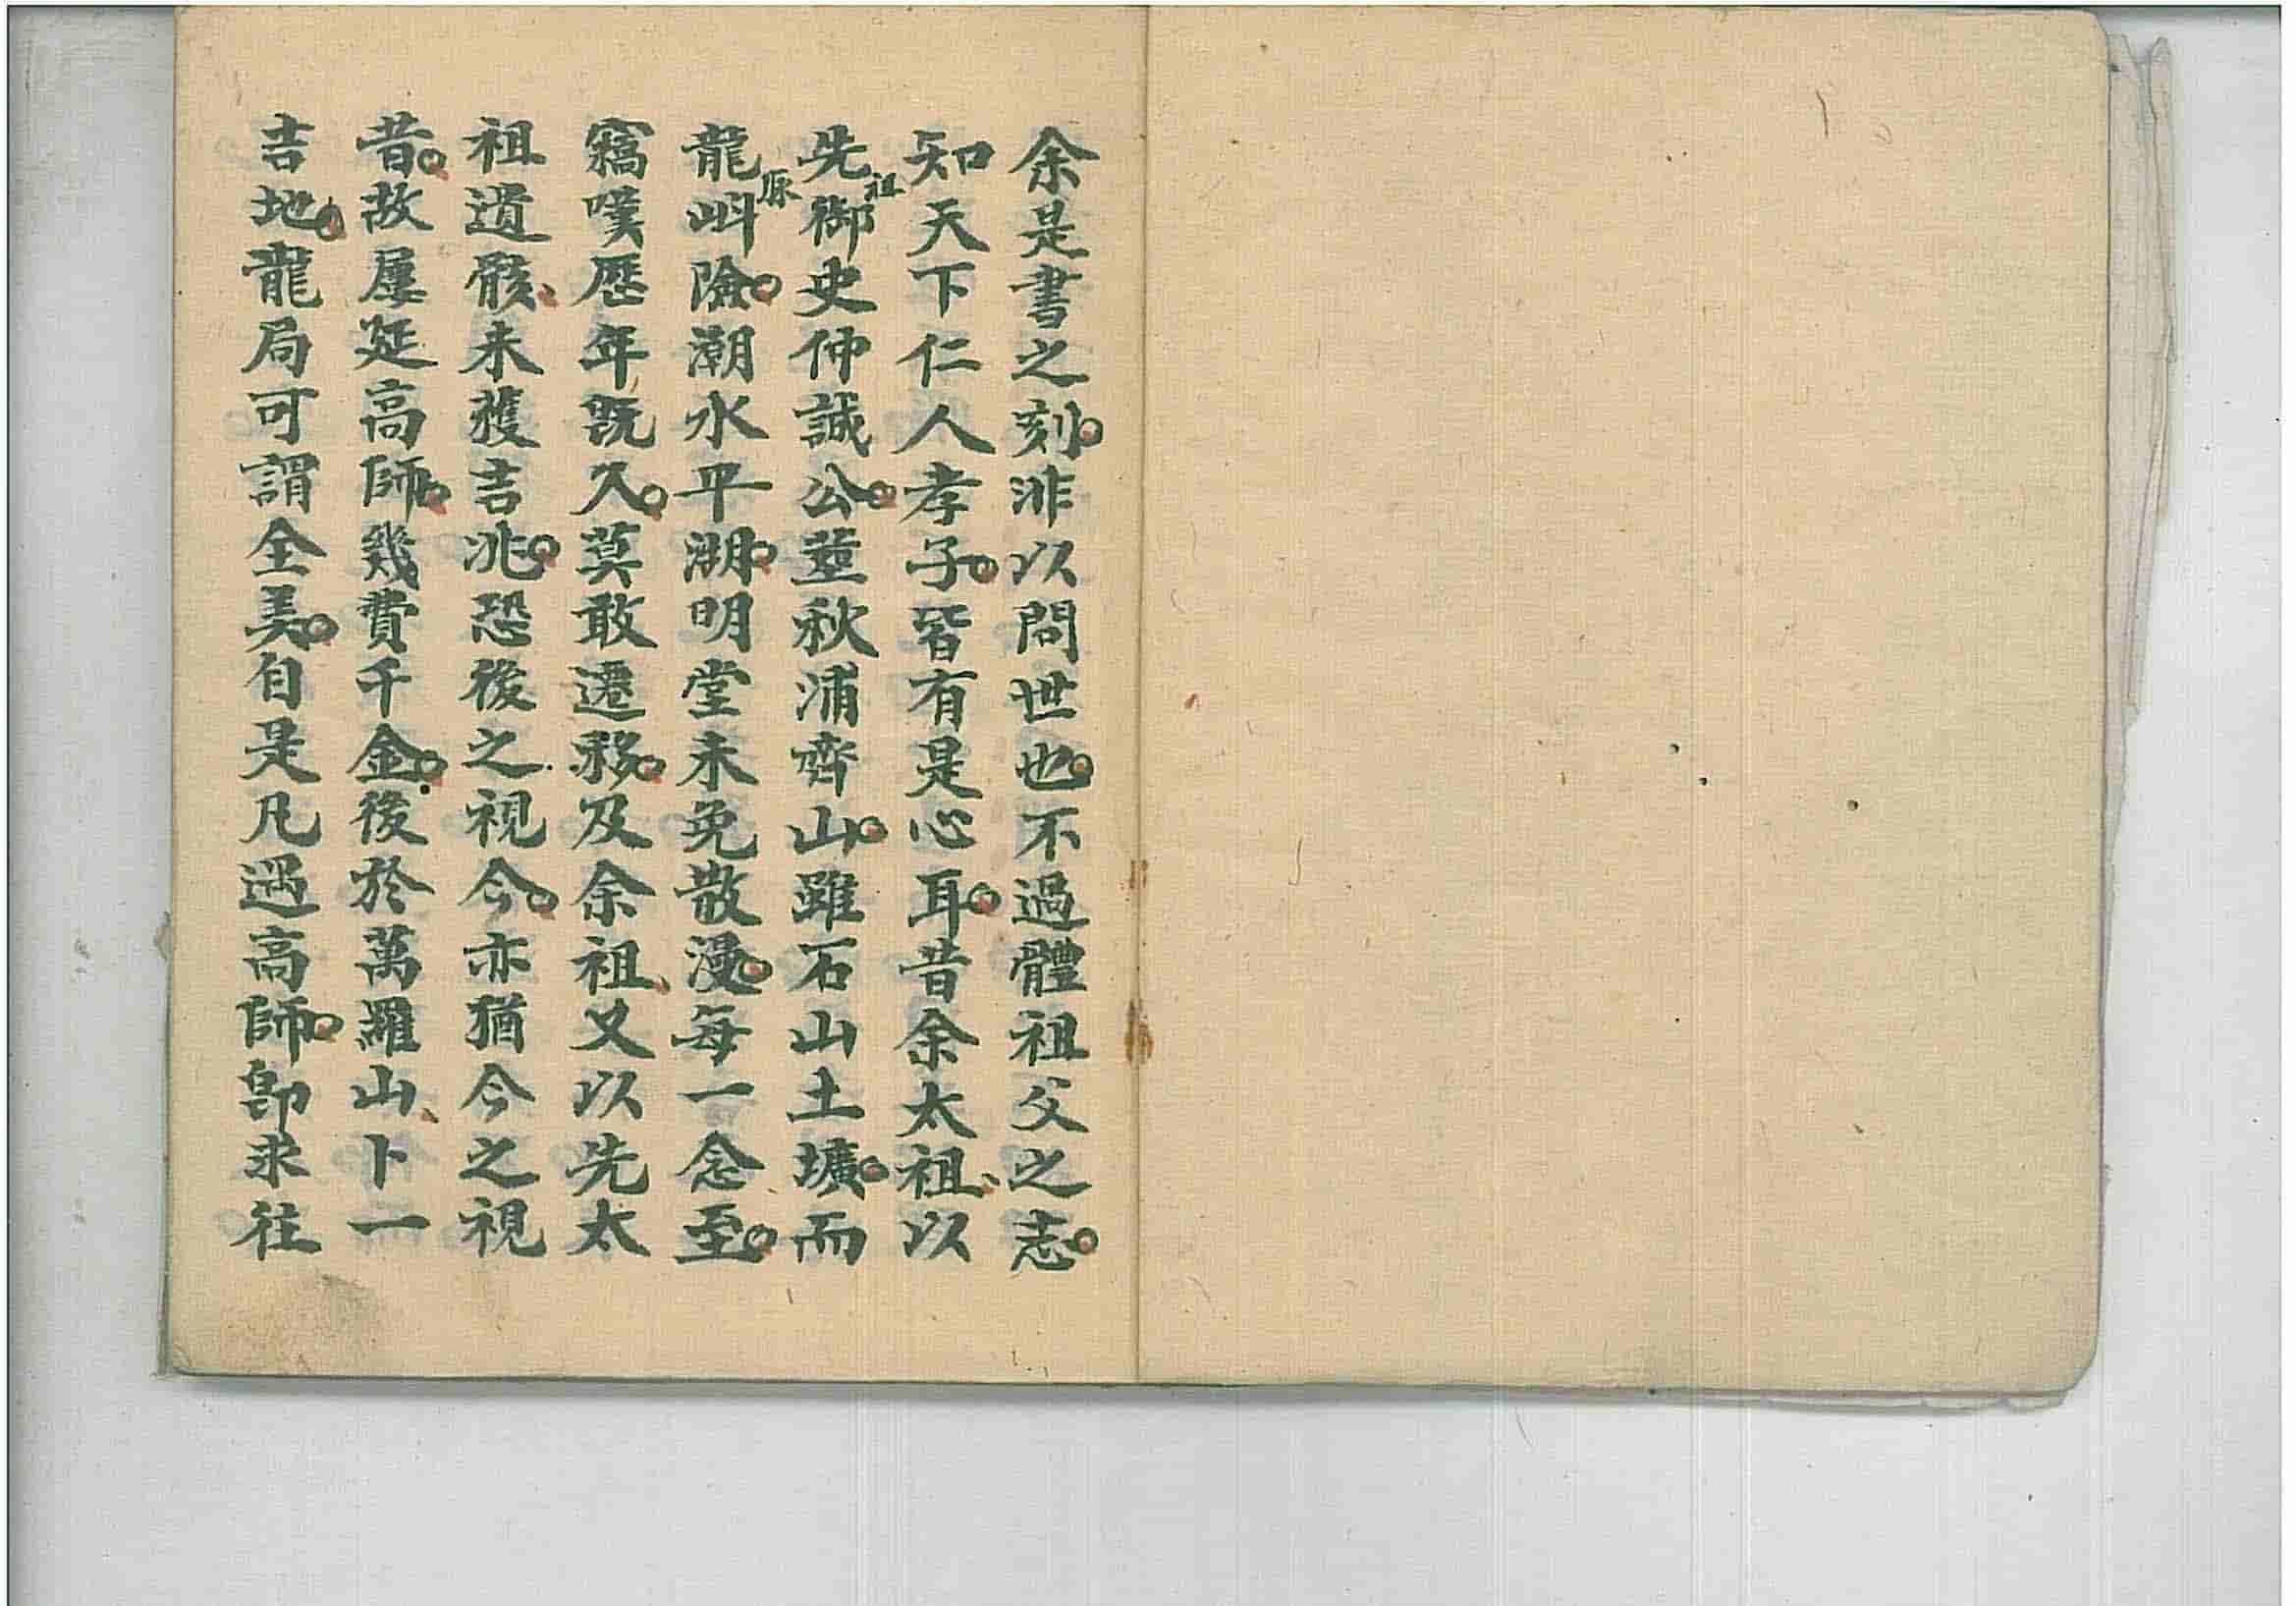 余是書之刻。非以問世也。不過體祖父之志。
知天下仁人孝子。皆有是心耳。昔余太祖、以
先祖御史仲誠公。葬秋浦齊山。雖石山土壙。而
龍脉峢險。潮水平湖。明堂未免散漫。每一念至。
竊嘆歷年既久。莫敢遷移。及余祖、又以先太
祖遺骸、未獲吉兆。恐後之視今。亦猶今之視
昔。故屢延高師。幾費千金。後於萬羅山、卜一
吉地。龍局可謂全美。自是凡遇高師。即求往